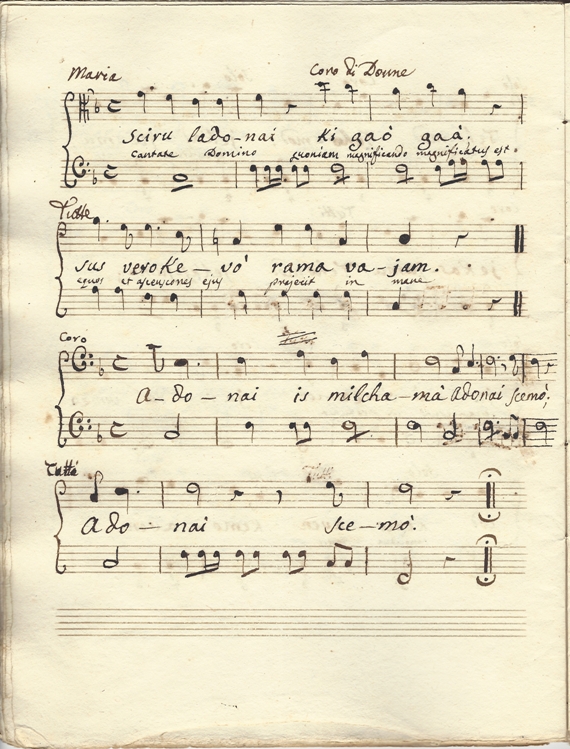 Maria Coro di Donne
Sciru lado-nai ki gaò gaà.
cantate Domino quoniam magnificando magnificatus est.
Tutte
sus veroke-vò rama va-jam.
equos et ascensores ejus projecit in mare
Coro
A-do-nai is milcha-mà Adonai scemò;
Tutte
Ado-nai sce-mò.